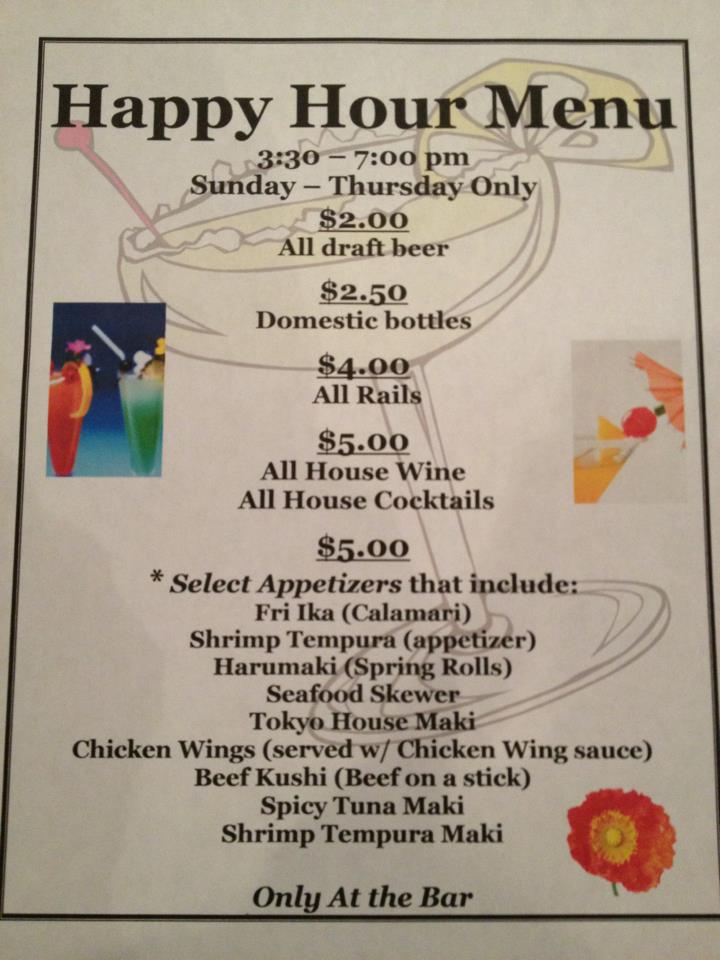 Happy Hour Menu
3:30 – 7:00 pm
Sunday – Thursday Only
$2.00
All draft beer
$2.50
Domestic bottles
$4.00
All Rails
$5.00
All House Wine
All House Cocktails
$5.00
* Select Appetizers that include:
Fri Ika (Calamari)
Shrimp Tempura (appetizer)
Harumaki (Spring Rolls)
Seafood Skewer
Tokyo House Maki
Chicken Wings (served w/ Chicken Wing sauce)
Beef Kushi (Beef on a stick)
Spicy Tuna Maki
Shrimp Tempura Maki
Only At the Bar